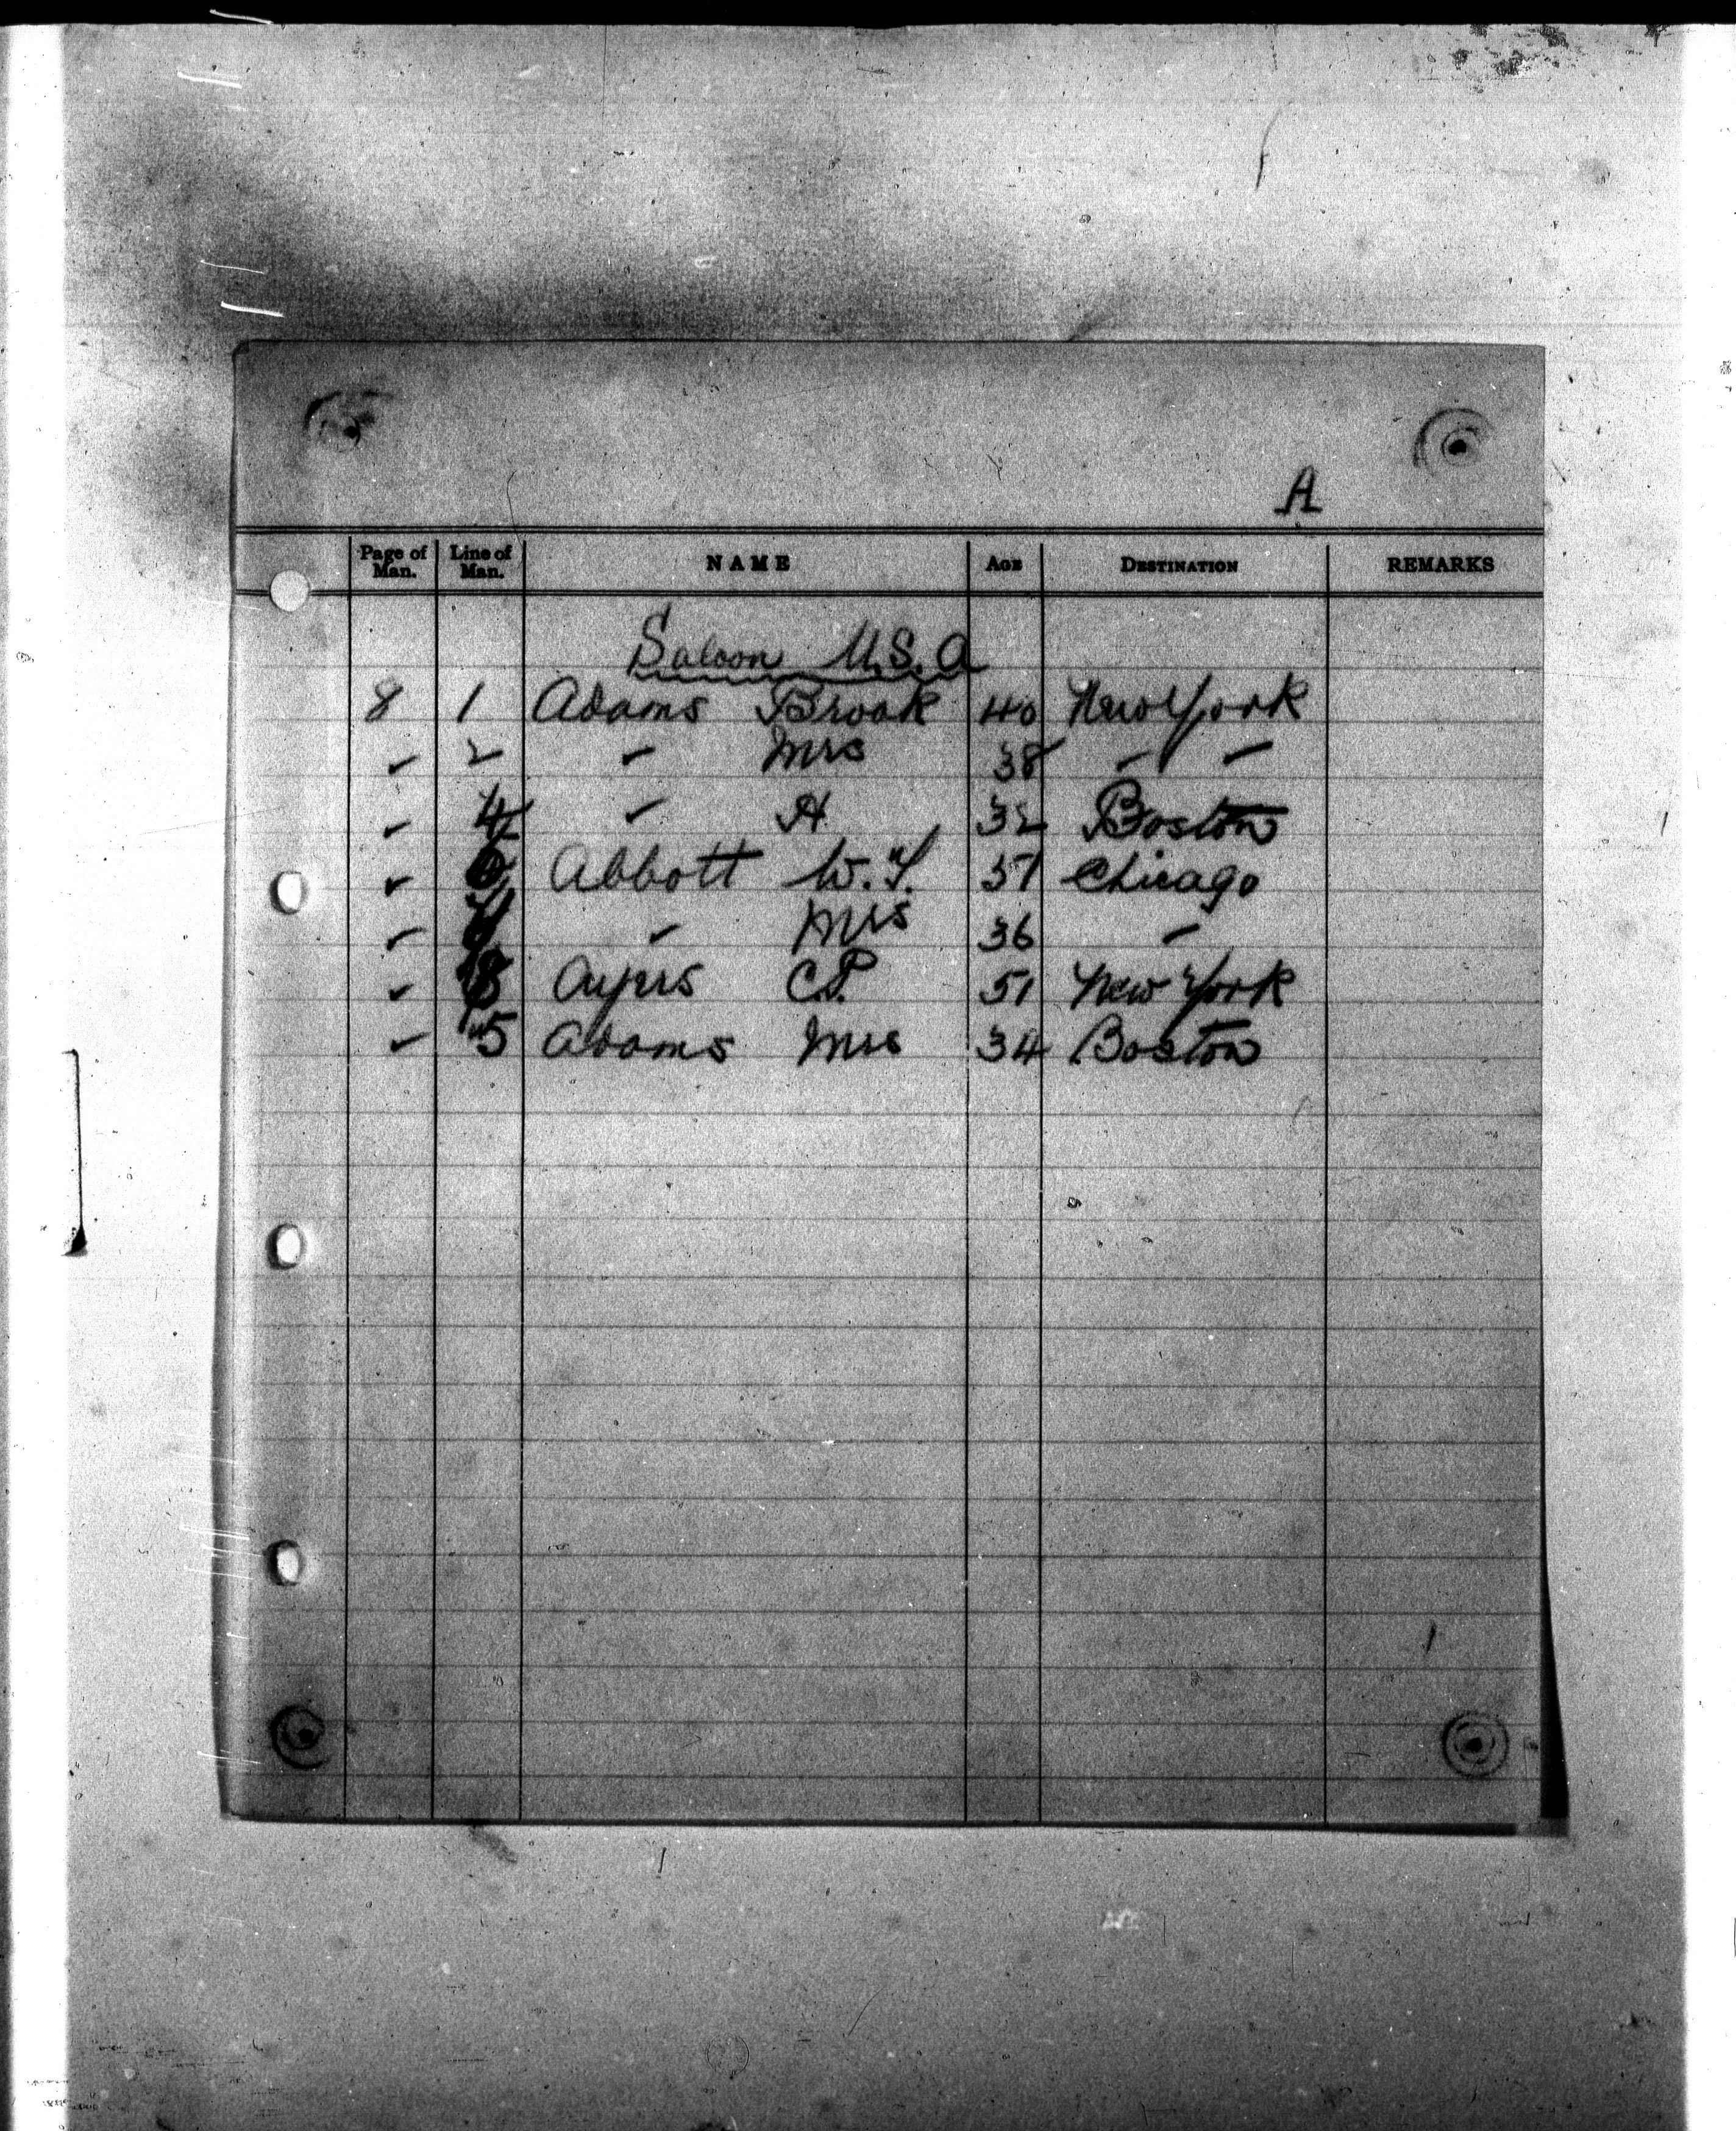 A
Page of Man. Line of Man. NAME AGE DESTINATION REMARKS
Saloon U.S.A
8 1 Adams Brook 40 New York
" 2 " Mrs 38 " "
" 4 " A 32 Boston
" 6 Abbott W.F. 37 Chicago
" " Mrs 36 "
" 8 Ayers C.P. 51 New York
" 5 Adams Mrs 34 Boston